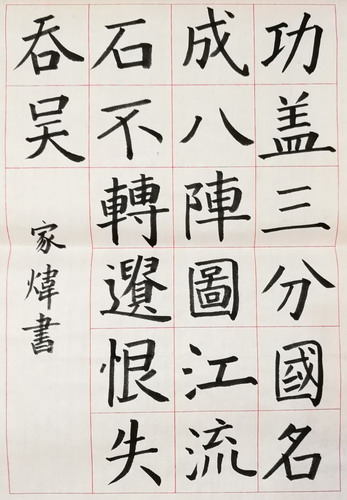 功盖三分國名
成八陣圖江流
石不轉遺恨失
吞吴
家煒書